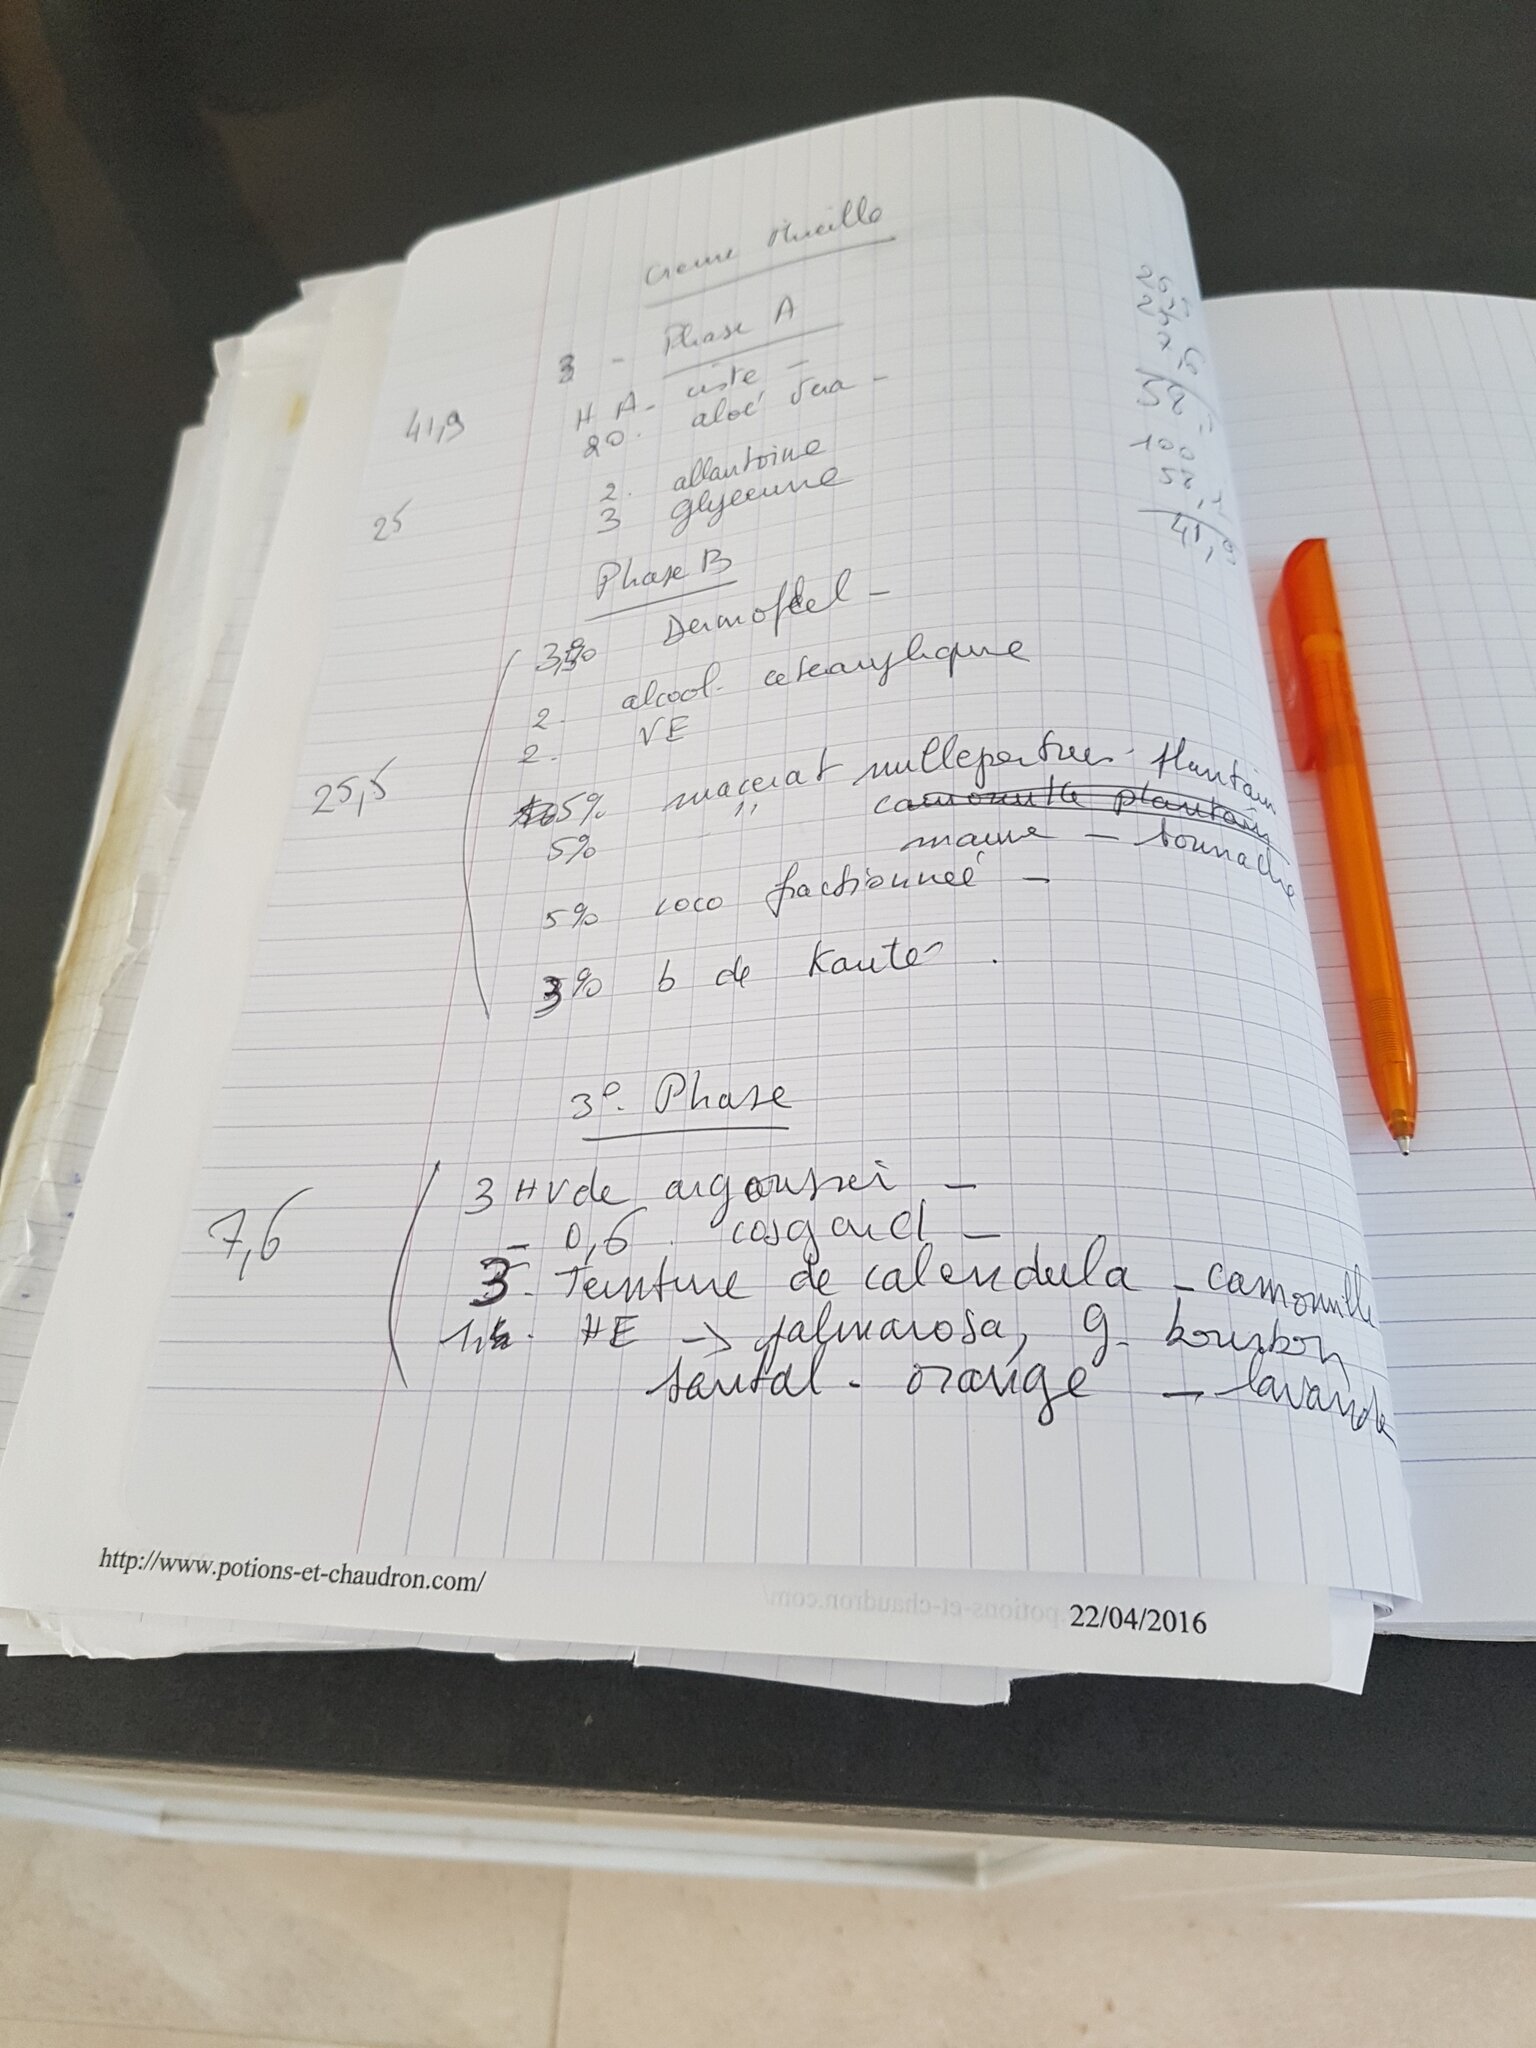 Creme
3 - Phase A
41,9 H A - ciste -
20. aloé vera -
2. allantoïne
25 3 glycerine
Phase B
3,5% Dermofeel -
2. alcool. cetearylique
2. VE
25,5 5% macerat millepertuis - plantain
5% " camomille plantain
mauve - bourrache
5% coco fractionneé -
3% b de Karité .
3º. Phase
3 HV de argousier -
7,6 - 0,6 . cosgard -
3 - Teinture de calendula - camomille
HE -> palmarosa, g. bourbon
santal - orange - lavande
25,5
25
7,6
58,1
100
58,1
41,9
http://www.potions-et-chaudron.com/
22/04/2016